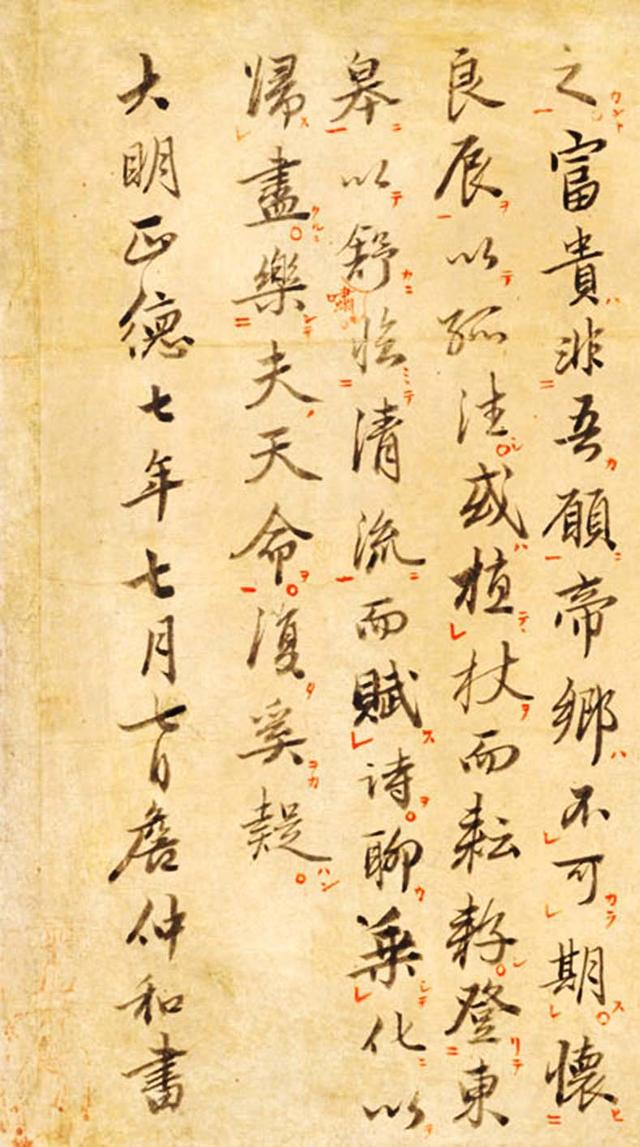 之富貴非吾願帝鄉不可期懷
良辰以孤往或植杖而耘耔登東
皋以舒嘯臨清流而賦詩聊乗化以
歸盡樂夫天命復奚疑
大明正徳七年七月七日詹仲和書